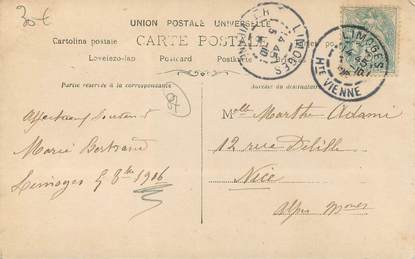 30 €
UNION POSTALE UNIVERSELLE
CARTE POSTALE
Cartolina postale
Levelezo-lap Postcard Postkarte
Partie réservée à la correspondance
du destinataire
06
LIMOGES
LIMOGES
Hte VIENNE
Affectueux Souvenir
Marie Bertrand
Limoges 5 8bre 1906
Melle Marthe Adami
12 rue Delille
Nice
Alpes Mmes